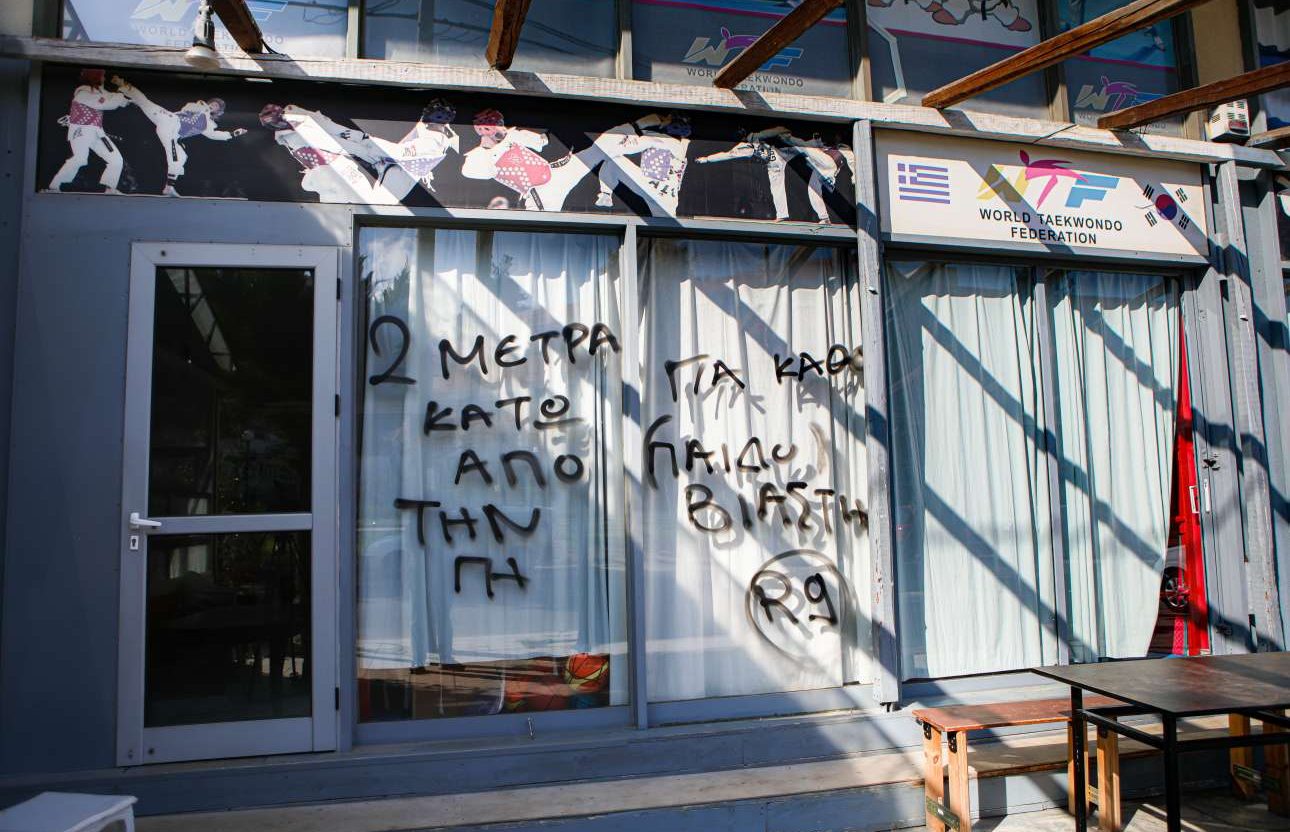 WORLD TAEKWONDO
WTF
WORLD TAEKWONDO
FEDERATION
WTF
WTF
WORLD TAEKWONDO
FEDERATION
2 ΜΕΤΡΑ
ΚΑΤΩ
ΑΠΟ
ΤΗΝ
ΓΗ
ΓΙΑ ΚΑΘΕ
(ΠΑΙΔΟ)
ΒΙΑΣΤΗ
Rg